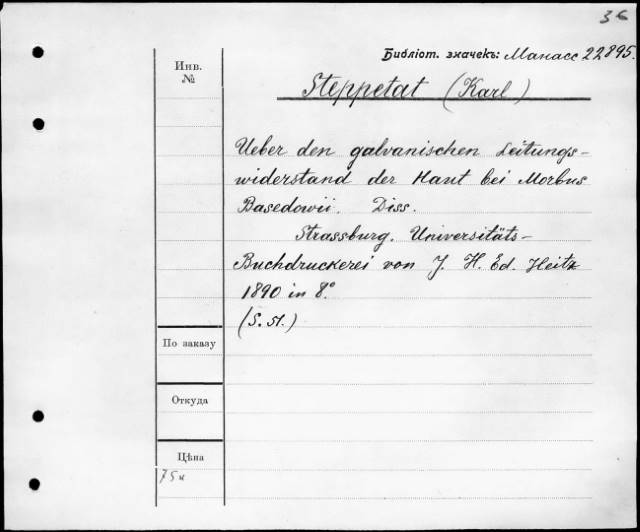 36
Библіот. значекъ: Манасс 22895.
Инв.
№
Steppetat (Karl)
Ueber den galvanischen Leitungs-
widerstand der Haut bei Morbus
Basedowii. Diss.
Strassburg. Universitäts-
Buchdruckerei von J. H. Ed. Heitz
1890 in 8º
(S. 51.)
По заказу
Откуда
Цѣна
75к